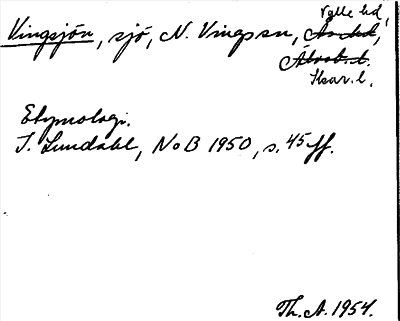 Vingsjön, sjö, N. Ving sn, Ås hd,
Valle hd,
Älvsb. l.
Skar. l.
Etymologi.
I. Lundahl, NoB 1950, s. 45 ff.
Th. A. 1954.